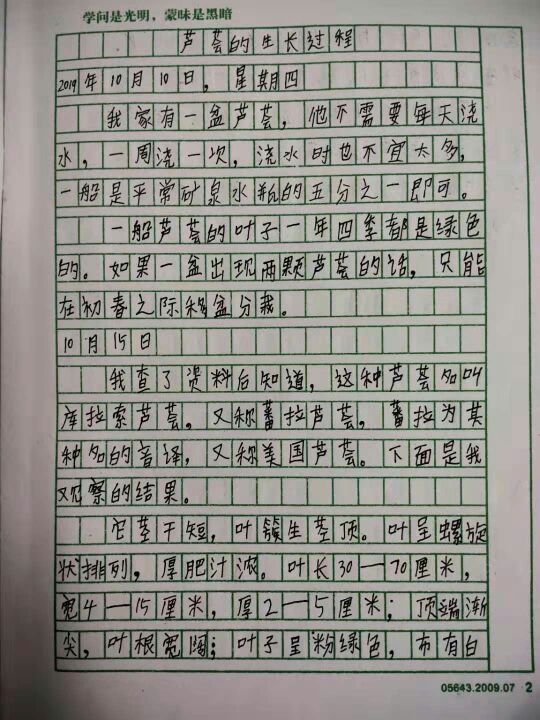 学问是光明，蒙昧是黑暗
芦荟的生长过程
2019年10月10日，星期四
我家有一盆芦荟，他不需要每天浇
水，一周浇一次，浇水时也不宜太多，
一船是平常矿泉水瓶的五分之一即可。
一船芦荟的叶子一年四季都是绿色
的。如果一盆出现两颗芦荟的话，只能
在初春之际移盆分栽。
10月15日
我查了资料后知道，这种芦荟名叫
库拉索芦荟，又称蕃拉芦荟，蕃拉为其
种名的音译，又称美国芦荟。下面是我
观察的结果。
它茎干短，叶簇生茎顶。叶呈螺旋
状排列，厚肥汁浓。叶长30—70厘米，
宽4—15厘米，厚2—5厘米；顶端渐
尖，叶根宽阔；叶子呈粉绿色，布有白
05643.2009.07 2